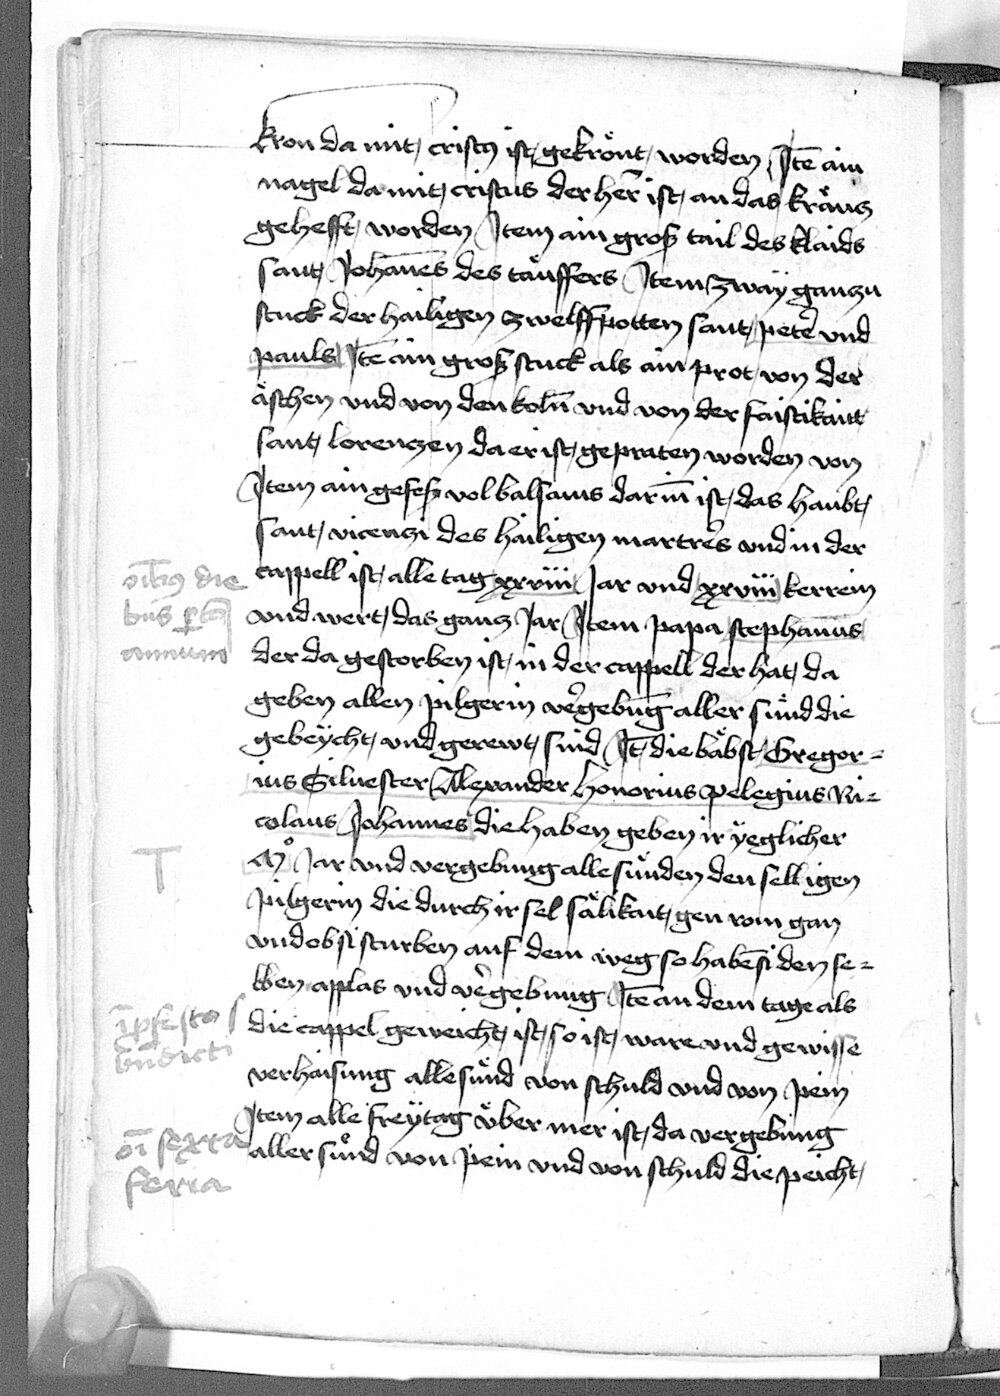 kron da mit cristus ist gekrönt worden Itē ain
nagel da mit cristus der her̄ ist an das kräucz
gehefft worden Item ain groß tail des klaids
sant Johanēs des täuffers Item zwaÿ ganczn
stuck der hailigen zwelffpotten sant petẽ vnd
pauls Itē ain groß stuck als ain prot von der
äschen vnd von den koln̄ vnd von der faistikaitt
sant lorenczen da er ist gepraten worden von
Item ain gefeß vol balsams dar in̄ ist das haubt
sant vicenczi des hailigen martrẽs vnd in der
cappell ist alle tag xxviii Jar vnd xxviii kerrein
vnd wert das gancz Jar Item papa stephanūs
der da gestorben ist in der cappell der hat da
geben allen pilgerin vẽgebun̄g aller sünd die
gebeÿcht vnd gerewt sind Itē die bäbst Gregor=
ius Siluester Alexander honorius pelegius Ni=
colaus Johannes die haben geben ir ÿeglicher
Mo Jar vnd vergebung alle sünden den selligen
pilgerin die durch ir sel sälikait gen rom gan
vnd ob si sturben auf dem weg so habē si den se=
lben applas vnd vẽgebung Itē an dem tage als
die cappel geweicht ist so ist ware vnd gewisse
verhaisung alle sünd von schuld vnd von pein
Item alle freÿtag über mer ist da vergebung
aller sünd von pein vnd von schuld die peicht
die
bus
annum
T
festo
bn̄dicti
oī sexta
feria